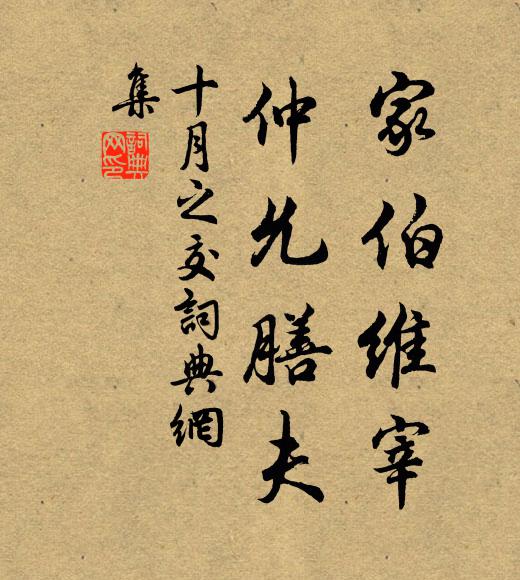 家伯維宰
仲允膳夫
十月之交詞典網
集
詞典
网印